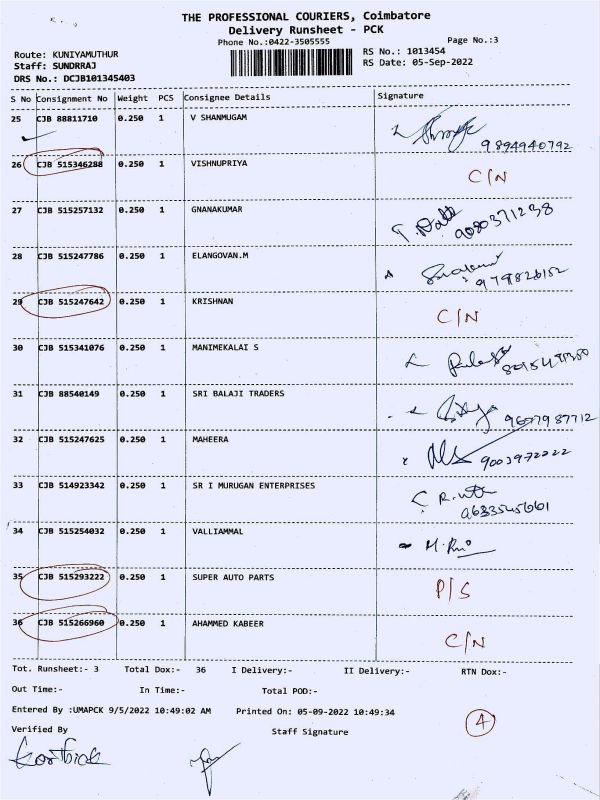 THE PROFESSIONAL COURIERS, Coimbatore
Delivery Runsheet - PCK
Phone No.:0422-3505555
Page No.:3
Route: KUNIYAMUTHUR
Staff: SUNDRRAJ
DRS No.: DCJB101345403
RS No.: 1013454
RS Date: 05-Sep-2022
S No Consignment No Weight PCS Consignee Details Signature
25 CJB 88811710 0.250 1 V SHANMUGAM
9894940792
26 CJB 515346288 0.250 1 VISHNUPRIYA C/N
27 CJB 515257132 0.250 1 GNANAKUMAR
9080371238
28 CJB 515247786 0.250 1 ELANGOVAN.M
29 CJB 515247642 0.250 1 KRISHNAN C/N
30 CJB 515341076 0.250 1 MANIMEKALAI S
31 CJB 88540149 0.250 1 SRI BALAJI TRADERS
9607987712
32 CJB 515247625 0.250 1 MAHEERA
9003972222
33 CJB 514923342 0.250 1 SR I MURUGAN ENTERPRISES
34 CJB 515254032 0.250 1 VALLIAMMAL
35 CJB 515293222 0.250 1 SUPER AUTO PARTS P/S
36 CJB 515266960 0.250 1 AHAMMED KABEER C/N
Tot. Runsheet:- 3 Total Dox:- 36 I Delivery:- II Delivery:- RTN Dox:-
Out Time:- In Time:- Total POD:-
Entered By :UMAPCK 9/5/2022 10:49:02 AM Printed On: 05-09-2022 10:49:34
4
Verified By Staff Signature
Karthick